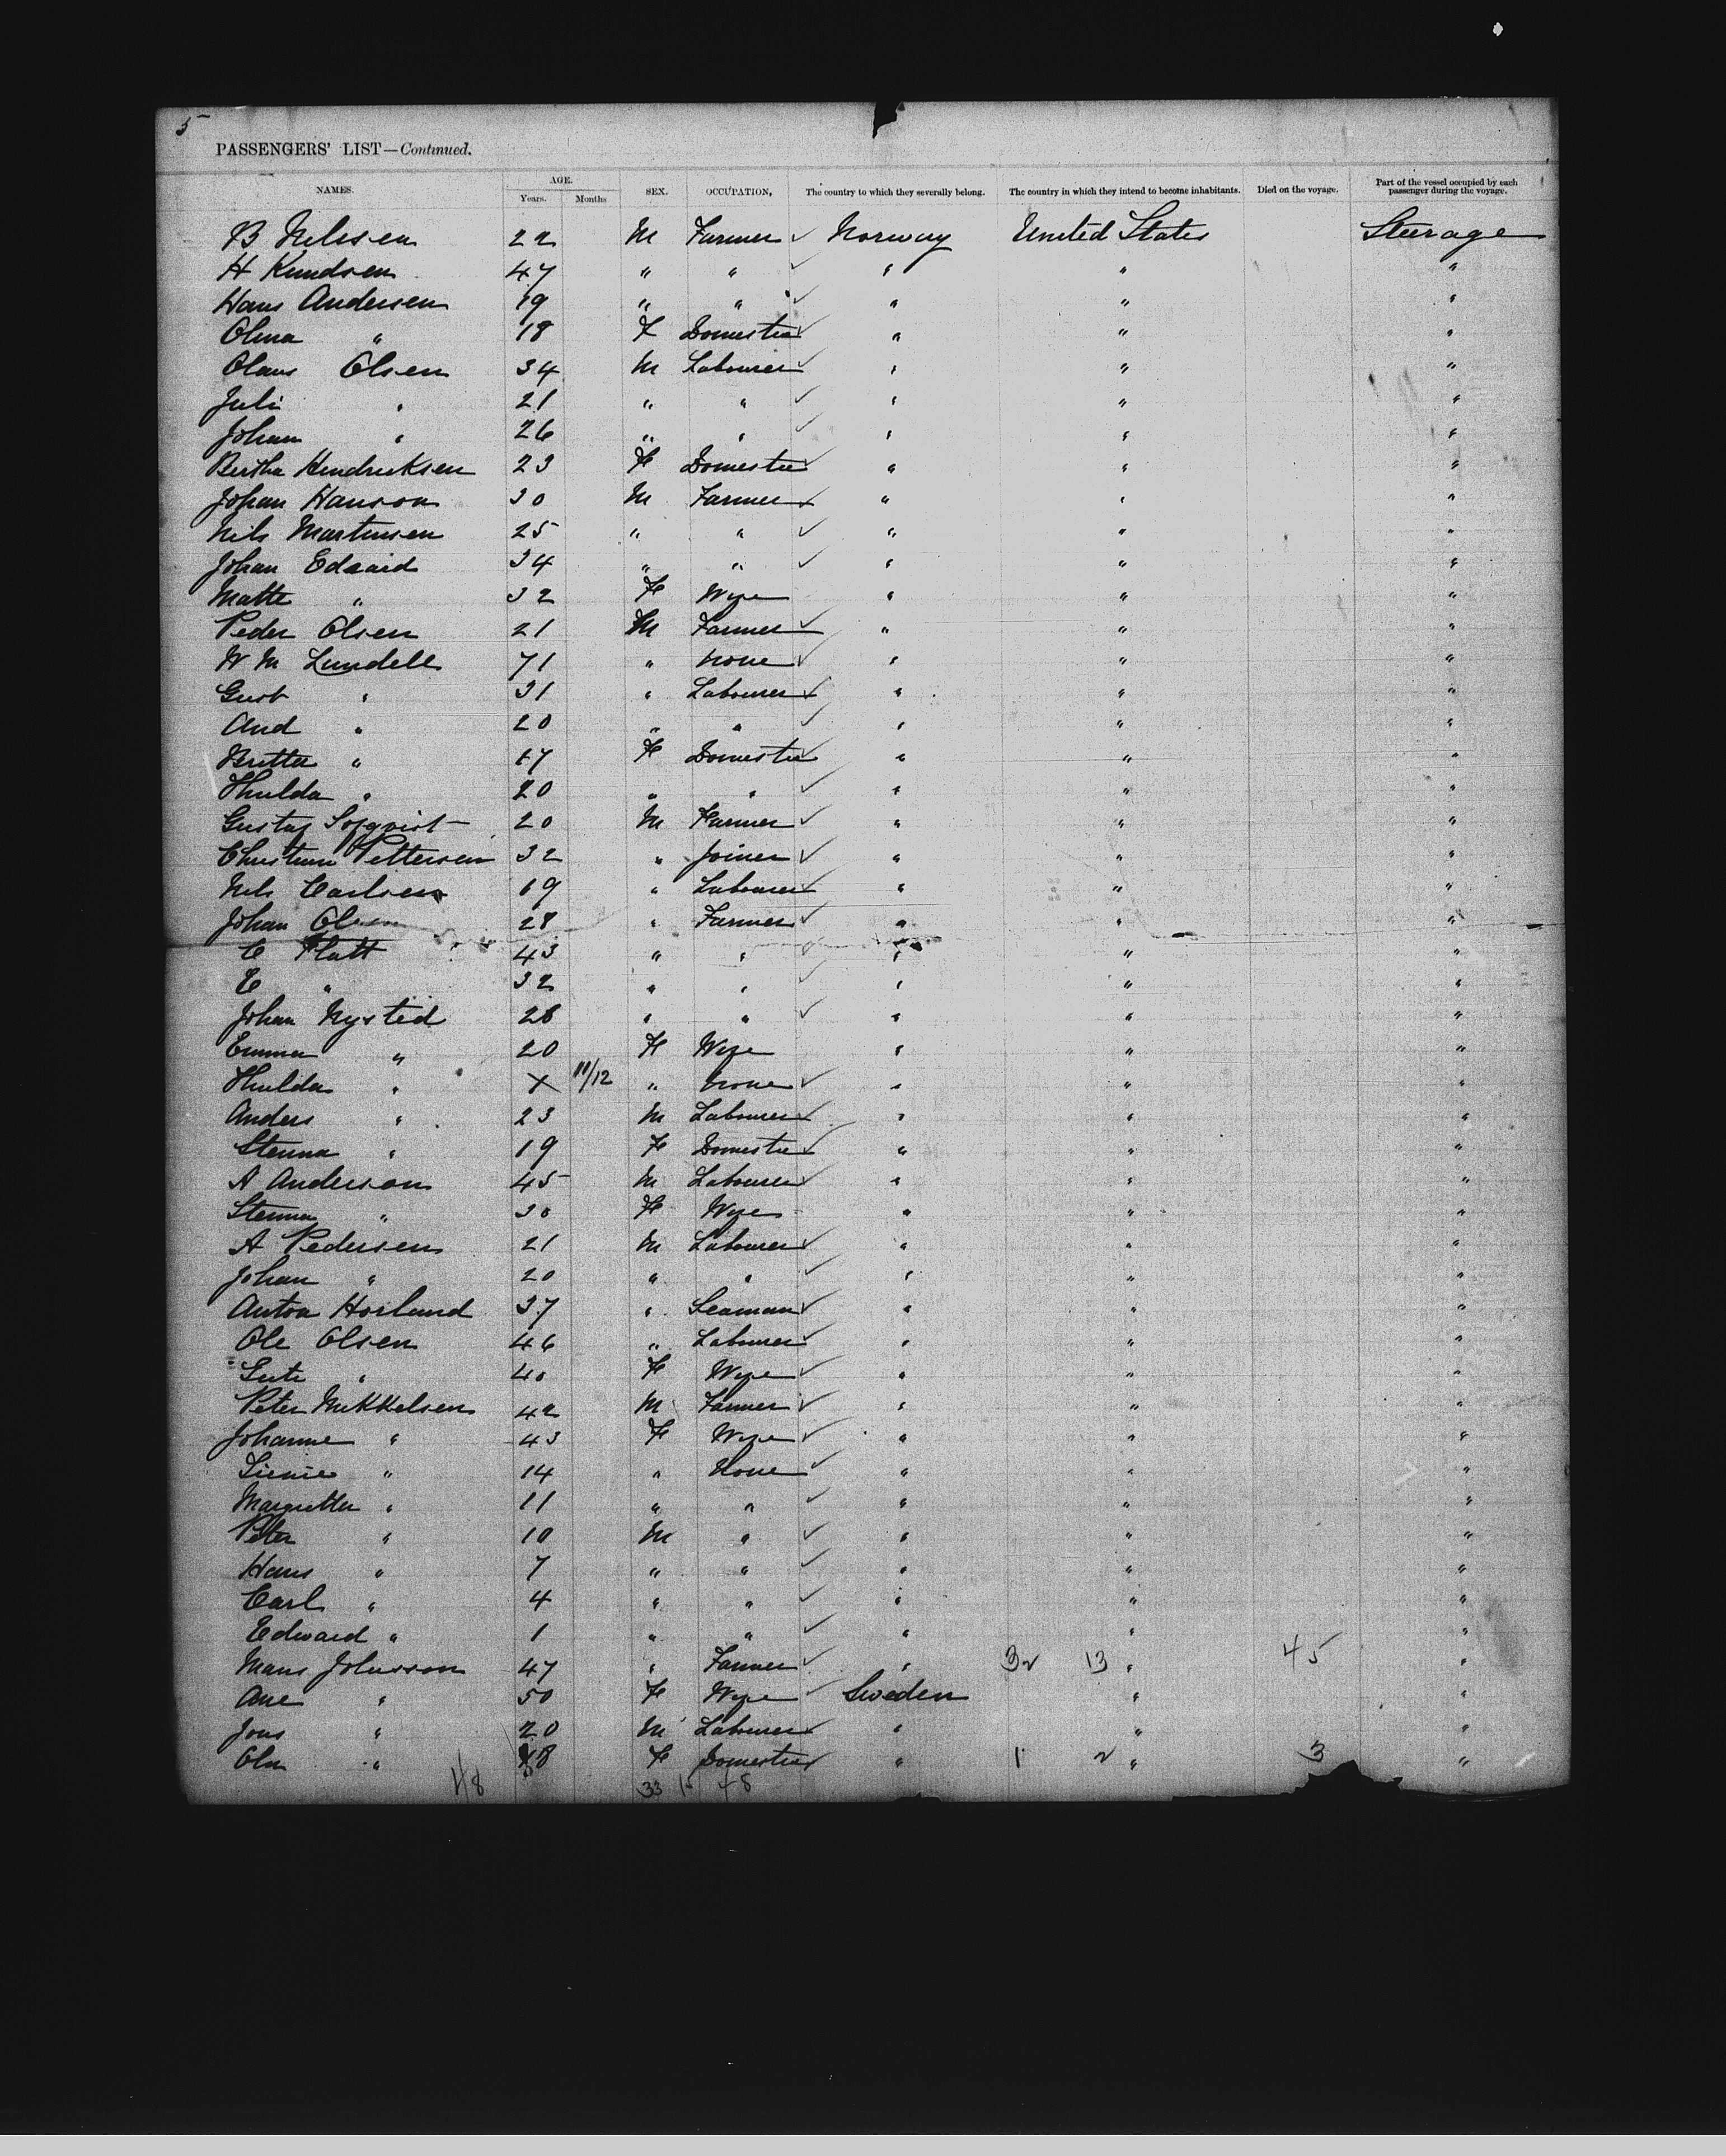 5
PASSENGERS' LIST—Continued.
NAMES. AGE. Years. Months SEX. OCCUPATION, The country to which they severally belong. The country in which they intend to become inhabitants. Died on the voyage. Part of the vessel occupied by each passenger during the voyage.
B Nilssen 22 M Farmer ✓ Norway United States Steerage
H Knudsen 47 " " ✓ " " "
Hans Andersen 19 " " ✓ " " "
Olina " 18 F Domestic ✓ " " "
Olaus Olsen 34 M Labourer ✓ " " "
Juli " 21 " " ✓ " " "
Johan " 26 " " ✓ " " "
Bertha Hendricksen 23 F Domestic ✓ " " "
Johan Hanson 30 M Farmer ✓ " " "
Nils Martinsen 25 " " ✓ " " "
Johan Edvard 34 " " ✓ " " "
Matte " 32 F Wife " " "
Peder Olsen 21 M Farmer ✓ " " "
W M Lundell 71 " None ✓ " " "
Gust " 31 " Labourer ✓ " " "
And " 20 " " ✓ " " "
Britta " 17 F Domestic ✓ " " "
Hulda " 20 " " ✓ " " "
Gustaf 20 M Farmer ✓ " " "
Christian Pettersen 32 " Joiner ✓ " " "
Nils Carlsen 19 " Labourer ✓ " " "
Johan Olsen 28 " Farmer ✓ " " "
C Flatt 43 " " ✓ " " "
E " 32 " " ✓ " " "
Johan Nysted 28 " " ✓ " " "
Emma " 20 F Wife " " "
Hulda " X 11/12 " None ✓ " " "
Anders " 23 M Labourer ✓ " " "
Stenna " 19 F Domestic ✓ " " "
A Anderson 45 M Labourer ✓ " " "
Stenna " 30 F Wife " " "
A Pedersen 21 M Labourer ✓ " " "
Johan " 20 " " ✓ " " "
Anton Horlund 37 " Seaman ✓ " " "
Ole Olsen 46 " Labourer ✓ " " "
" 40 F Wife ✓ " " "
Peter Mikkelsen 42 M Farmer ✓ " " "
Johanne " 43 F Wife ✓ " " "
" 14 " None ✓ " " "
Margretta " 11 " " ✓ " " "
Peter " 10 M " ✓ " " "
Hans " 7 " " ✓ " " "
Carl " 4 " " ✓ " " "
Edward " 1 " " ✓ " " "
Mans Johnsson 47 " Farmer ✓ " 32 13 " 45 "
Ane " 50 F Wife ✓ Sweden " "
Jons " 20 M Labourer ✓ " " "
Ola " 18 F Domestic ✓ " 1 2 " 3 "
48 33 15 48